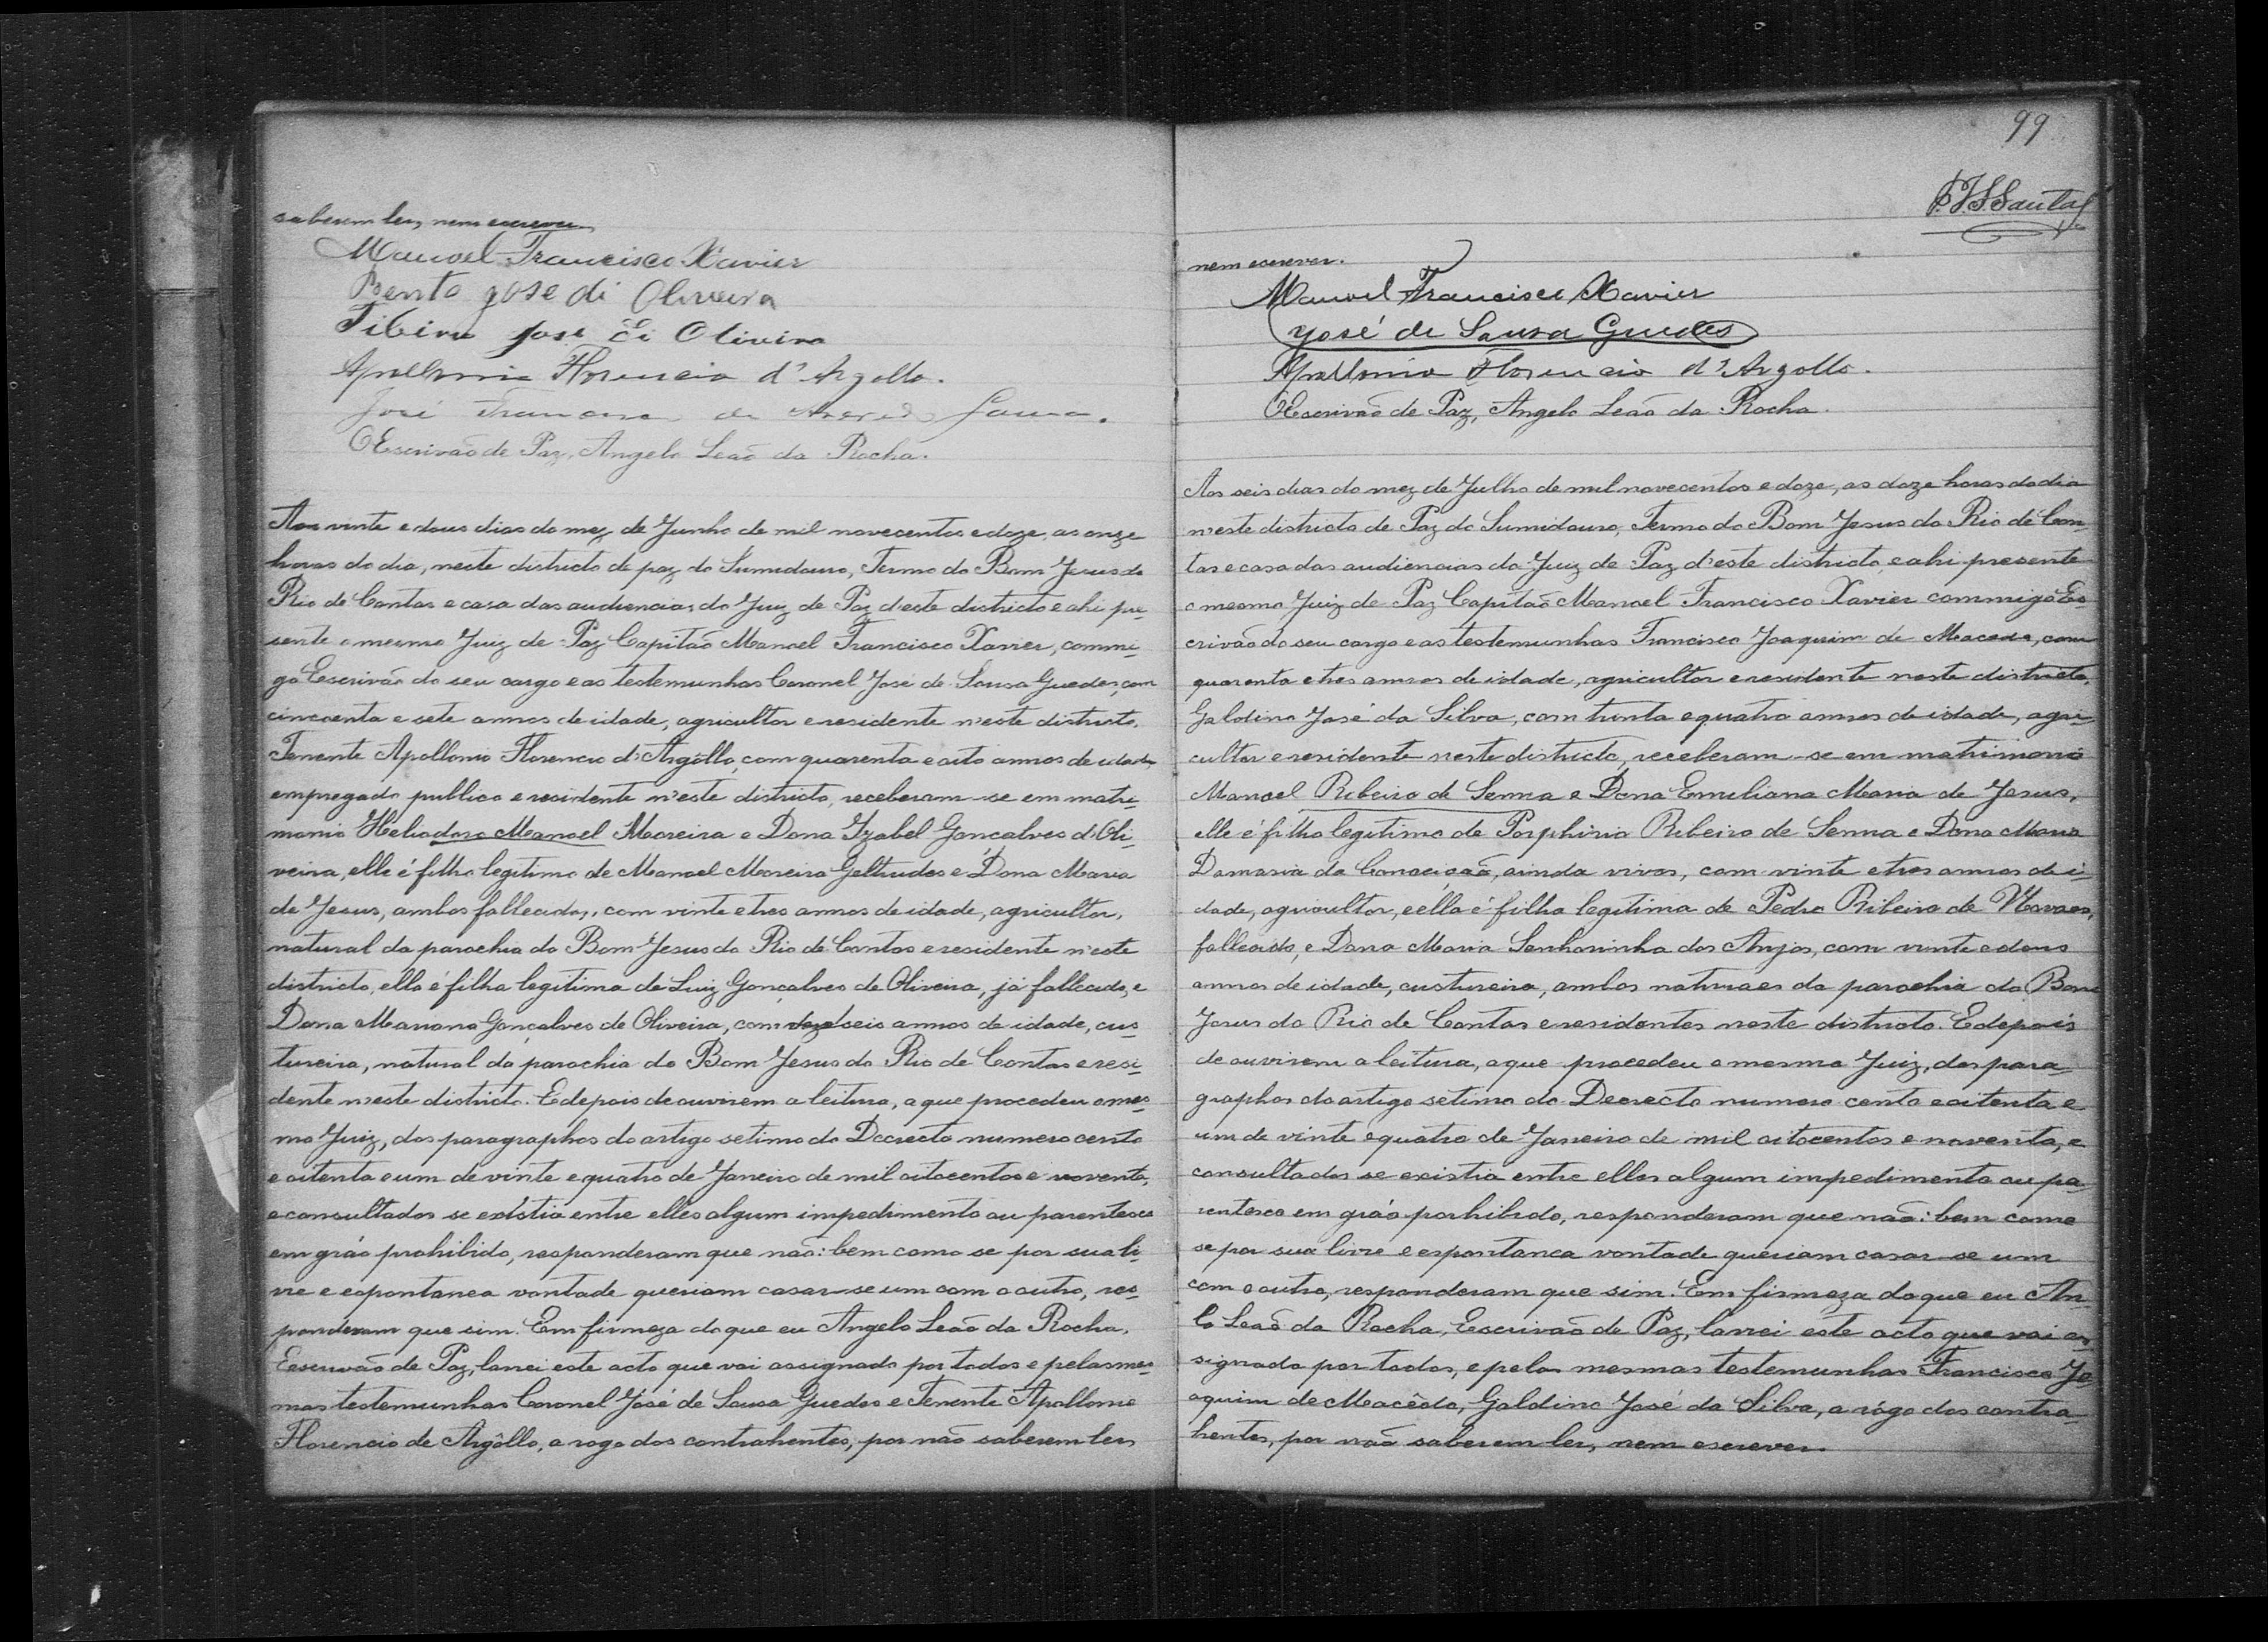 saberem ler, nem escrever.
Manoel Francisco Xavier
Bento jose di Oliveira
José Oliveira
Apollonio Florencio d'Argollo.
José de
O Escrivão de Paz, Angelo Leão da Rocha.
Aos vinte e dous dias do mez de Junho de mil novecentos e doze, as onze
horas do dia, neste districto de paz do Sumidouro, Termo do Bom Jesus do
Rio de Contas e casa das audiencias do Juiz de Paz d'este districto e ahi pre-
sente o mesmo Juiz de Paz Capitão Manoel Francisco Xavier, commi-
go Escrivão do seu cargo e as testemunhas Coronel José de Sousa Guedes, com
cincoenta e sete annos de idade, agricultor e residente n'este districto,
Tenente Apollonio Florencio d'Argôllo, com quarenta e oito annos de idade,
empregado publico e residente n'este districto, receberam-se em matri-
monio Heliodoro Manoel Moreira e Dona Izabel Gonçalves d'Oli-
veira, elle é filho legitimo de Manoel Moreira Geltrudes e Dona Maria
de Jesus, ambos fallecidos, com vinte e tres annos de idade, agricultor,
natural da parochia do Bom Jesus do Rio de Contas e residente n'este
districto, ella é filha legitima de Luiz Gonçalves de Oliveira, já fallecido, e
Dona Marianna Gonçalves de Oliveira, com dezeseis annos de idade, cus-
tureira, natural da parochia do Bom Jesus do Rio de Contas e resi-
dente n'este districto. E depois de ouvirem a leitura, a que procedeu o mes-
mo Juiz, dos paragraphos do artigo setimo do Decrecto numero cento
e oitenta e um de vinte e quatro de Janeiro de mil oitocentos e noventa,
e consultados se existia entre elles algum impedimento ou parentesco
em gráo prohibido, responderam que não: bem como se por sua li-
vre e espontanea vontade queriam casar-se um com o outro, res-
ponderam que sim. Em firmeza do que eu Angelo Leão da Rocha,
Escrivão de Paz, lavrei este acto que vai assignado por todos e pelas mes-
mas testemunhas Coronel José de Sousa Guedes e Tenente Apollonio
Florencio de Argôllo, a rogo dos contrahentes, por não saberem ler,
99
nem escrever.
Manoel Francisco Xavier
José de Sousa Guedes
Apollonio Florencio d'Argollo.
O Escrivão de Paz, Angelo Leão da Rocha.
Aos seis dias do mez de Julho de mil novecentos e doze, as doze horas do dia
n'este districto de Paz do Sumidouro, Termo do Bom Jesus do Rio de Con-
tas e casa das audiencias do Juiz de Paz d'este districto, e ahi presente
o mesmo Juiz de Paz Capitão Manoel Francisco Xavier commigo Es-
crivão do seu cargo e as testemunhas Francisco Joaquim de Macedo, com
quarenta e tres annos de idade, agricultor e residente neste districto,
Galdino José da Silva, com trinta e quatro annos de idade, agri-
cultor e residente neste districto, receberam-se em matrimonio
Manoel Ribeiro de Senna e Dona Emiliana Maria de Jesus,
elle é filho legitimo de Porphirio Ribeiro de Senna e Dona Maria
Damasia da Conceição, ainda vivos, com vinte e tres annos de i-
dade, agricultor, e ella é filha legitima de Pedro Ribeiro de Novaes,
fallecido, e Dona Maria Senhorinha dos Anjos, com vinte e dous
annos de idade, custureira, ambos naturaes da parochia do Bom
Jesus do Rio de Contas e residentes neste districto. E depois
de ouvirem a leitura, a que procedeu o mesmo Juiz, dos para-
graphos do artigo setimo do Decrecto numero cento e oitenta e
um de vinte e quatro de Janeiro de mil oitocentos e noventa, e
consultados se existia entre elles algum impedimento ou pa-
rentesco em gráo porhibido, responderam que não: bem como
se por sua livre e espontanea vontade queriam casar-se um
com o outro, responderam que sim. Em firmeza do que eu An-
lo Leão da Rocha, Escrivão de Paz, lavrei este acto que vai as-
signado por todos, e pelas mesmas testemunhas Francisco Jo-
aquim de Macêdo, Galdino José da Silva, a rôgo dos contra-
hentes, por não saberem ler, nem escrever.